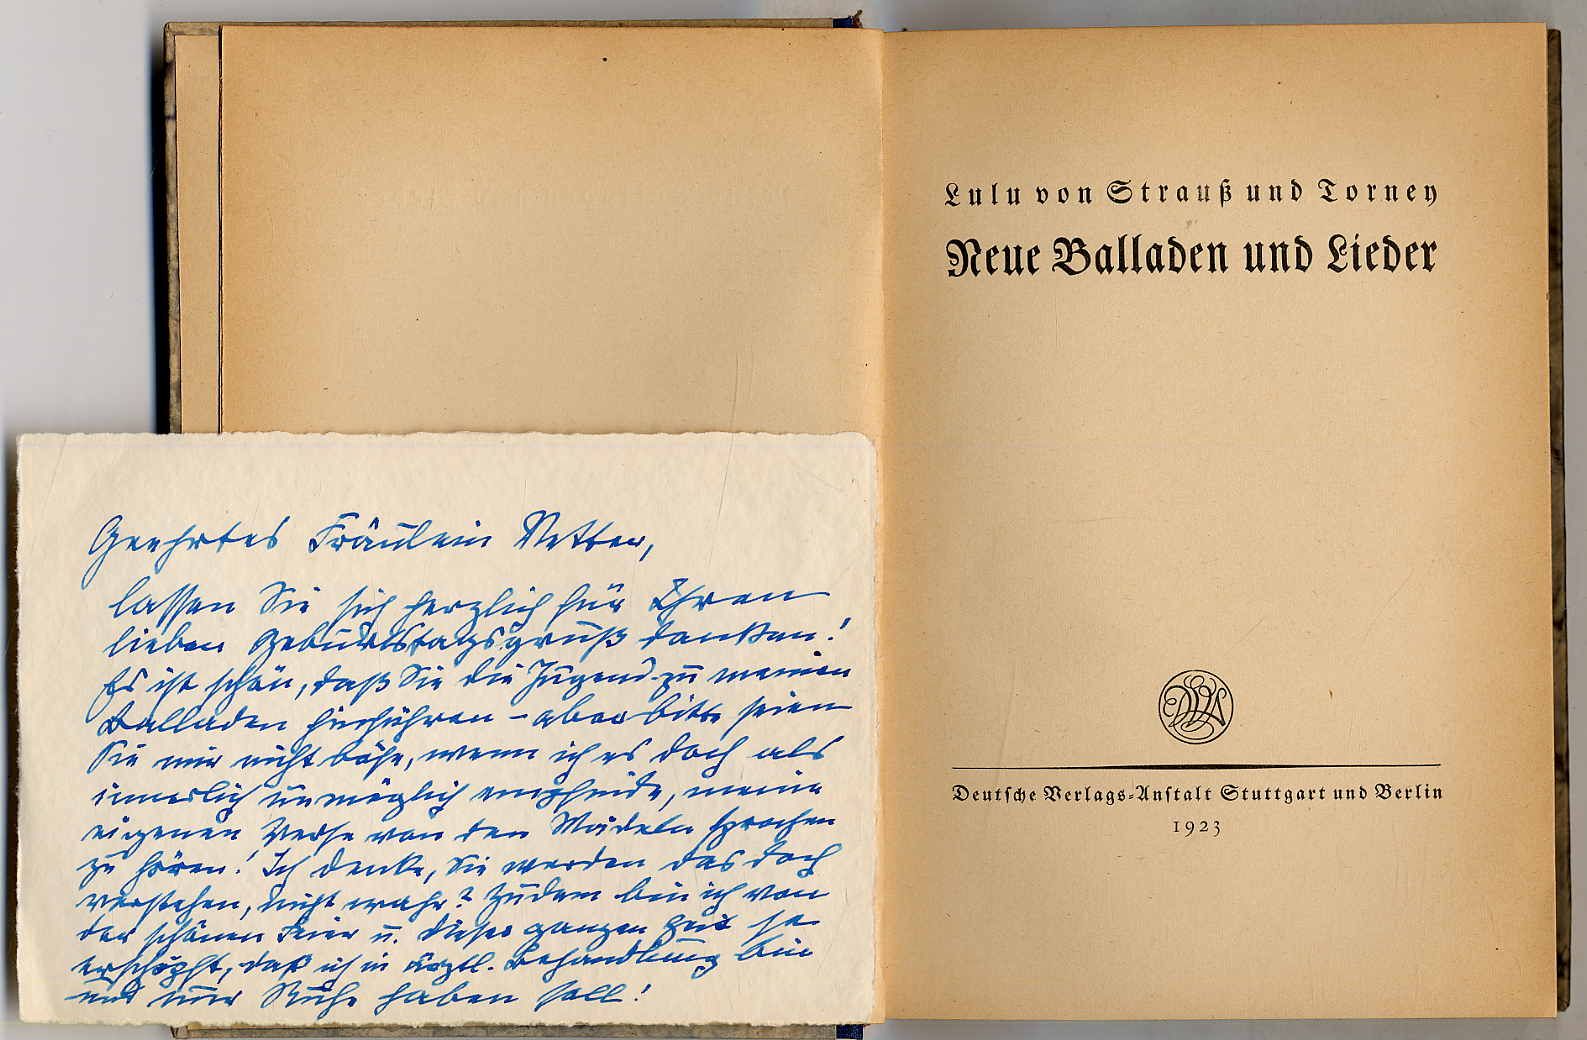 Geehrtes Fräulein Vetter,
lassen Sie sich herzlich für Ihren
lieben Geburtstagsgruß danken!
Es ist schön, daß Sie die Jugend zu meinen
Balladen hinführen – aber bitte seien
Sie mir nicht böse, wenn ich es doch als
innerlich unmöglich empfinde, meine
eigenen Verse von den Mädeln sprechen
zu hören! Ich denke, Sie werden das doch
verstehen, nicht wahr? Zudem bin ich von
der schönen Feier u. dieser ganzen Zeit so
erschöpft, daß ich in ärztl. Behandlung bin
und nur Ruhe haben soll!
Lulu von Strauß und Torney
Neue Balladen und Lieder
DVA
Deutsche Verlags-Anstalt Stuttgart und Berlin
1923